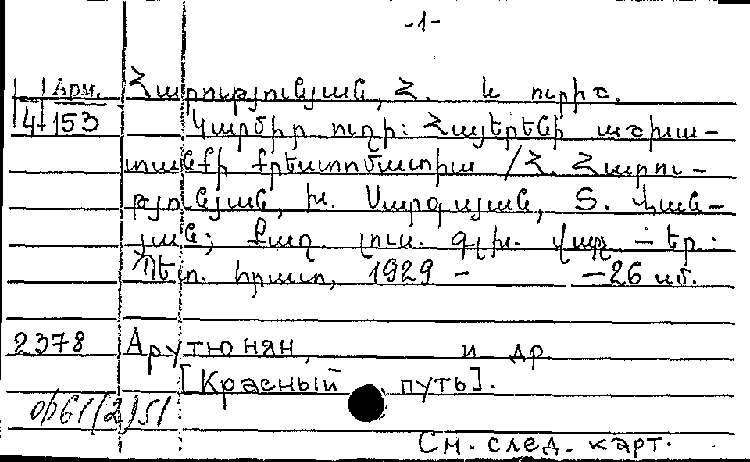 -1-
Арм. Հարությունյան, Հ. և ուրիշ.
4-153 Կարմիր ուղի: Հայերենի աշխա-
տանքի քրեստոմատիա /Հ. Հարու-
թյունյան, Խ. Սարգսյան, Տ.
յան; Քաղ. լուս. գլխ. վարչ. – Եր.:
Պետ. հրատ., 1929 – – 26 սմ.
2378 Арутюнян, и др.
[Красный путь].
См. след. карт.